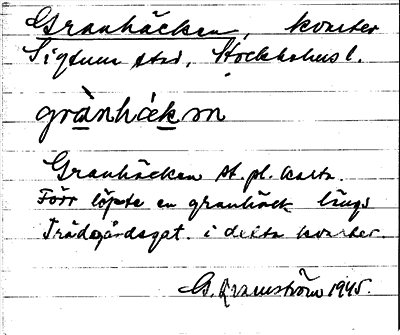 Granhäcken, kvarter
Sigtuna stad, Stockholms l.
grànhäkm
Granhäcken st. pl. karta.
Förr löpte en granhäck längs
Trädgårdsgat. i detta kvarter.
G. Qvarnström 1945.